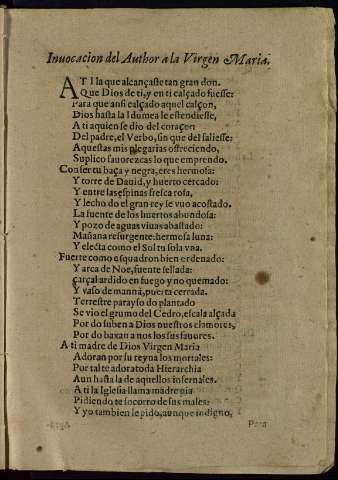 Inuocacion del Author a la Virgen Maria.
A TI la que alcançaste tan gran don.
Que Dios de ti, y en ti calçado fuesse:
Para que ansi calçado aquel calçon,
Dios hasta la Idumea le estendiesse,
A ti a quien se dio del coraçon
Del padre, el Verbo, sin que del saliesse:
Aquestas mis plegarias ofreciendo,
Suplico fauorezcas lo que emprendo.
Con ser tu baça y negra, eres hermosa:
Y torre de Dauid, y huerto cercado:
Y entre las espinas fresca rosa,
Y lecho do el gran rey se vuo acostado.
La fuente de los huertos abondosa:
Y pozo de aguas viuas abastado:
Mañana resurgente, hermosa luna:
Y electa como el Sol tu sola vna.
Fuerte como esquadron bien ordenado:
Y arca de Noe, fuente sellada:
Çarçal ardido en fuego y no quemado:
Y vaso de manná, puerta cerrada.
Terrestre parayso do plantado
Se vio el grumo del Cedro, escala alçada
Por do suben a Dios nuestros clamores,
Por do baxan a nos los sus fauores.
A ti madre de Dios Virgen Maria
Adoran por su reyna los mortales:
Por tal te adora toda Hierarchia
Aun hasta la de aquellos infernales.
A ti la Iglesia llama madre pia
Pidiendo te socorro de sus males:
Y yo tambien le pido, aunque indigno,
Para